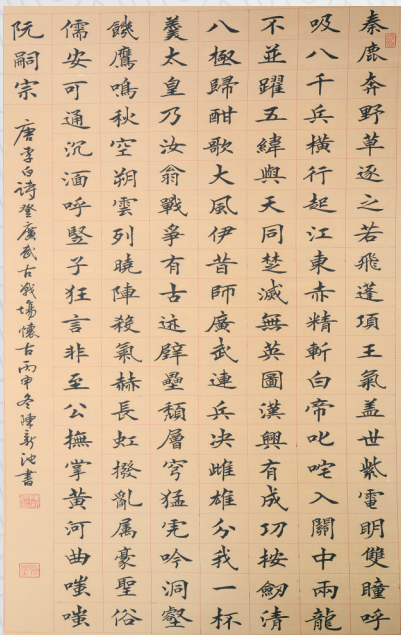 秦鹿奔野草逐之若飛蓬項王氣盖世紫電明雙瞳呼
吸八千兵橫行起江東赤精斬白帝叱咤入關中兩龍
不並躍五緯與天同楚滅無英圖漢興有成功按劒清
八極歸酣歌大風伊昔師廣武連兵决雌雄分我一杯
羹太皇乃汝翁戰爭有古迹壁壘頹層穹猛虎吟洞壑
饑鷹鳴秋空朔雲列曉陣殺氣赫長虹撥亂属豪聖俗
儒安可通沉湎呼竪子狂言非至公撫掌黃河曲嗤嗤
阮嗣宗 唐李白詩登廣武古戰場懷古丙申冬陳新池書